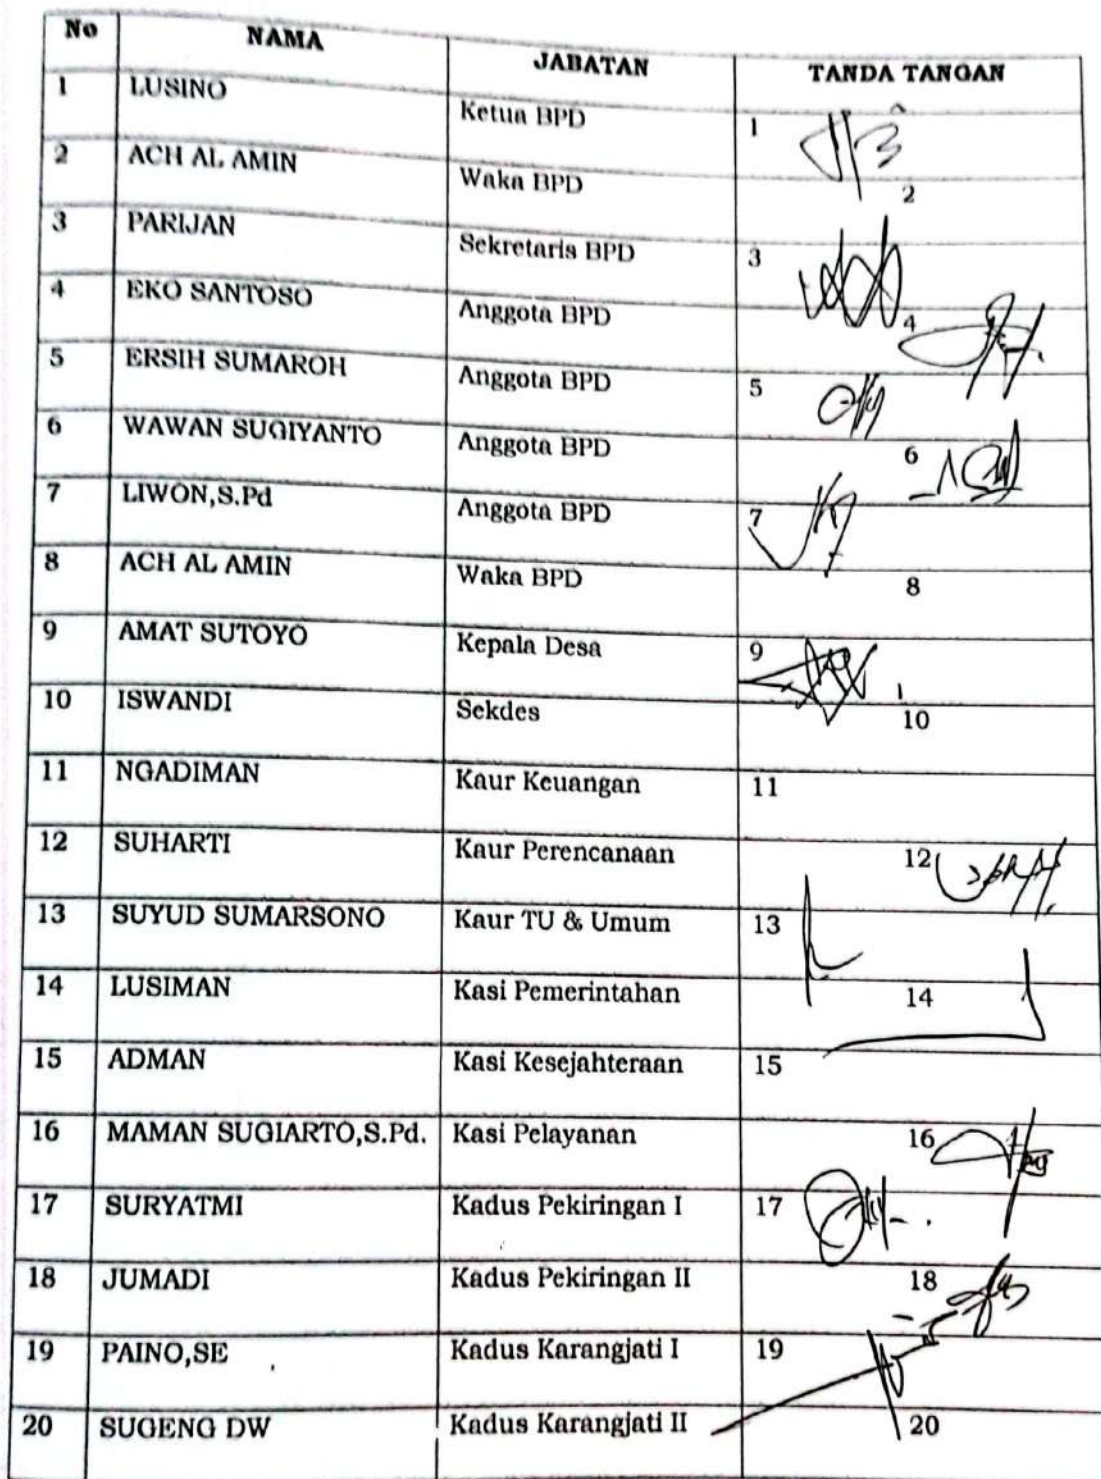 No NAMA JABATAN TANDA TANGAN
1 LUSINO Ketua BPD 1
2 ACH AL AMIN Waka BPD 2
3 PARIJAN Sekretaris BPD 3
4 EKO SANTOSO Anggota BPD 4
5 ERSIH SUMAROH Anggota BPD 5
6 WAWAN SUGIYANTO Anggota BPD 6
7 LIWON,S.Pd Anggota BPD 7
8 ACH AL AMIN Waka BPD 8
9 AMAT SUTOYO Kepala Desa 9
10 ISWANDI Sekdes 10
11 NGADIMAN Kaur Keuangan 11
12 SUHARTI Kaur Perencanaan 12
13 SUYUD SUMARSONO Kaur TU & Umum 13
14 LUSIMAN Kasi Pemerintahan 14
15 ADMAN Kasi Kesejahteraan 15
16 MAMAN SUGIARTO,S.Pd. Kasi Pelayanan 16
17 SURYATMI Kadus Pekiringan I 17
18 JUMADI Kadus Pekiringan II 18
19 PAINO,SE Kadus Karangjati I 19
20 SUGENG DW Kadus Karangjati II 20